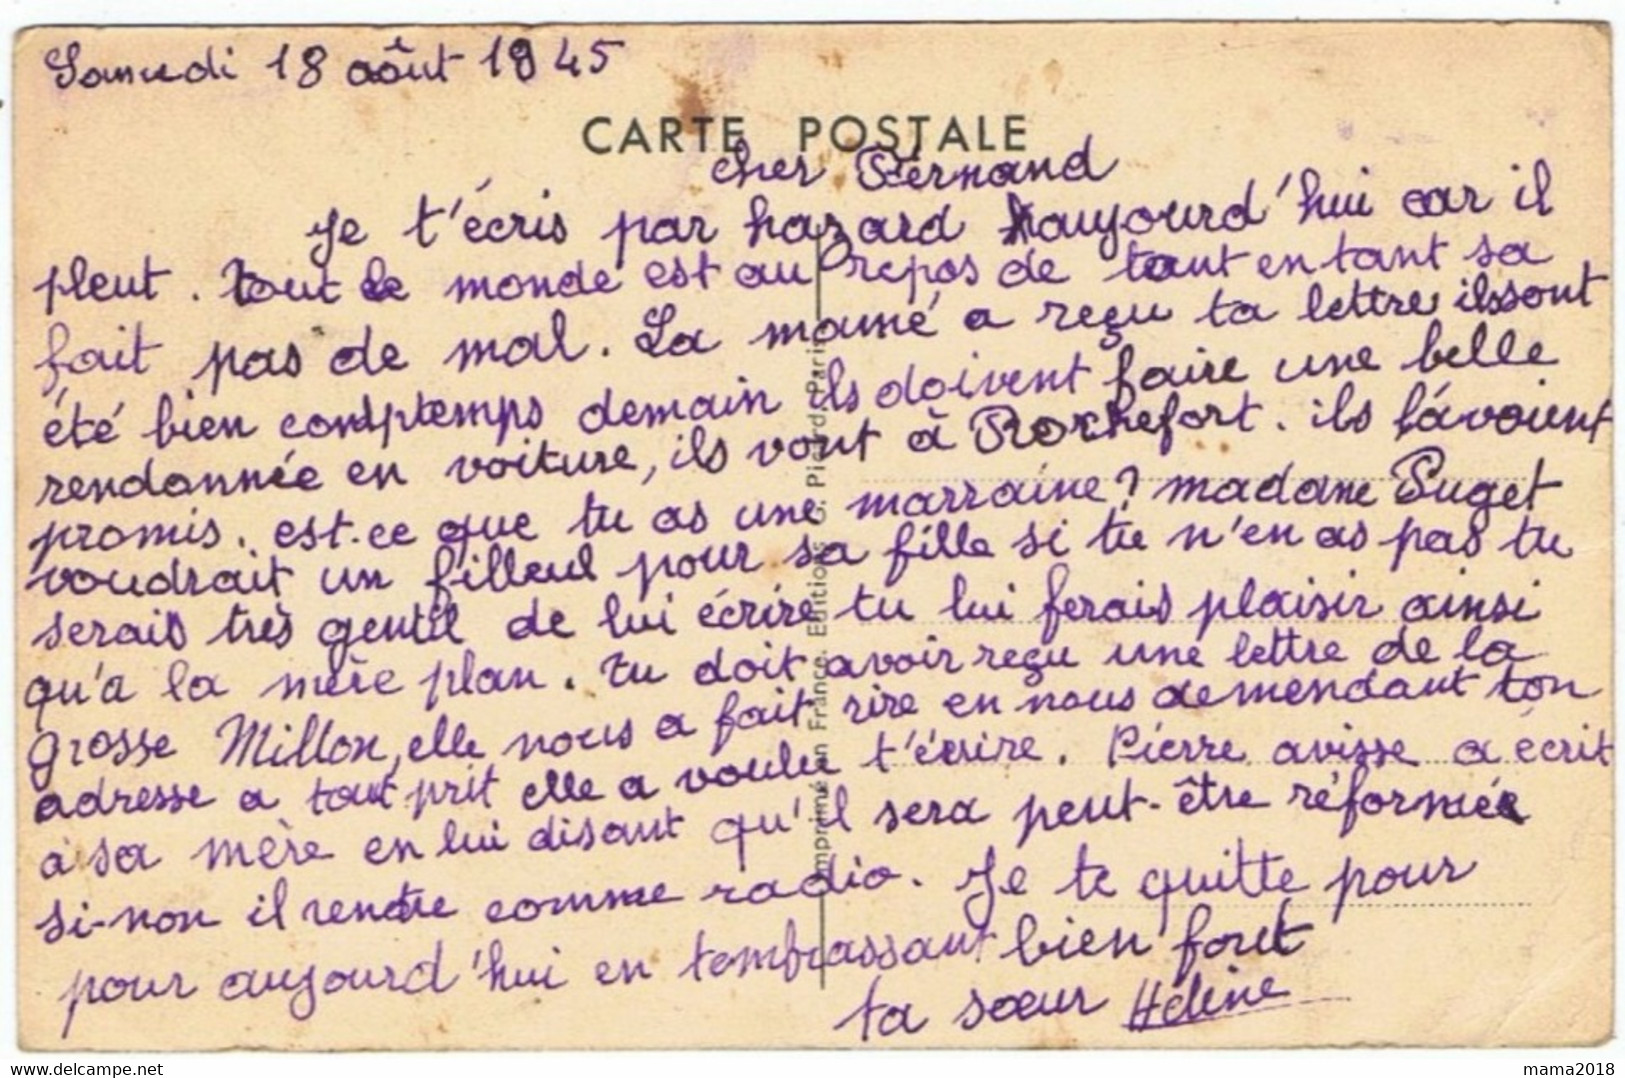 Samedi 18 août 1945
CARTE POSTALE
cher Fernand
Je t'écris par hazard aujourd'hui car il
pleut. tout le monde est au repos de tant en tant sa
fait pas de mal. La mamé a reçu ta lettre ils sont
été bien comptemps demain ils doivent faire une belle
rendonnée en voiture, ils vont à Rochefort. ils l'avoient
promis. est-ce que tu as une marraine? madame Puget
voudrait un filleul pour sa fille si tu n'en as pas tu
serais très gentil de lui écrire tu lui ferais plaisir ainsi
qu'a la mère plan. tu doit avoir reçu une lettre de la
grosse Millon, elle nous a fait rire en nous demendant ton
adresse a tout prit elle a voulu t'écrire. Pierre avisse a écrit
a sa mère en lui disant qu'il sera peut-être réformée
si-non il rentre comme radio. Je te quitte pour
pour aujourd'hui en tembrassant bien fort
ta sœur Héline
Imprimé en France. Editions G. Picard, Paris
mama2018